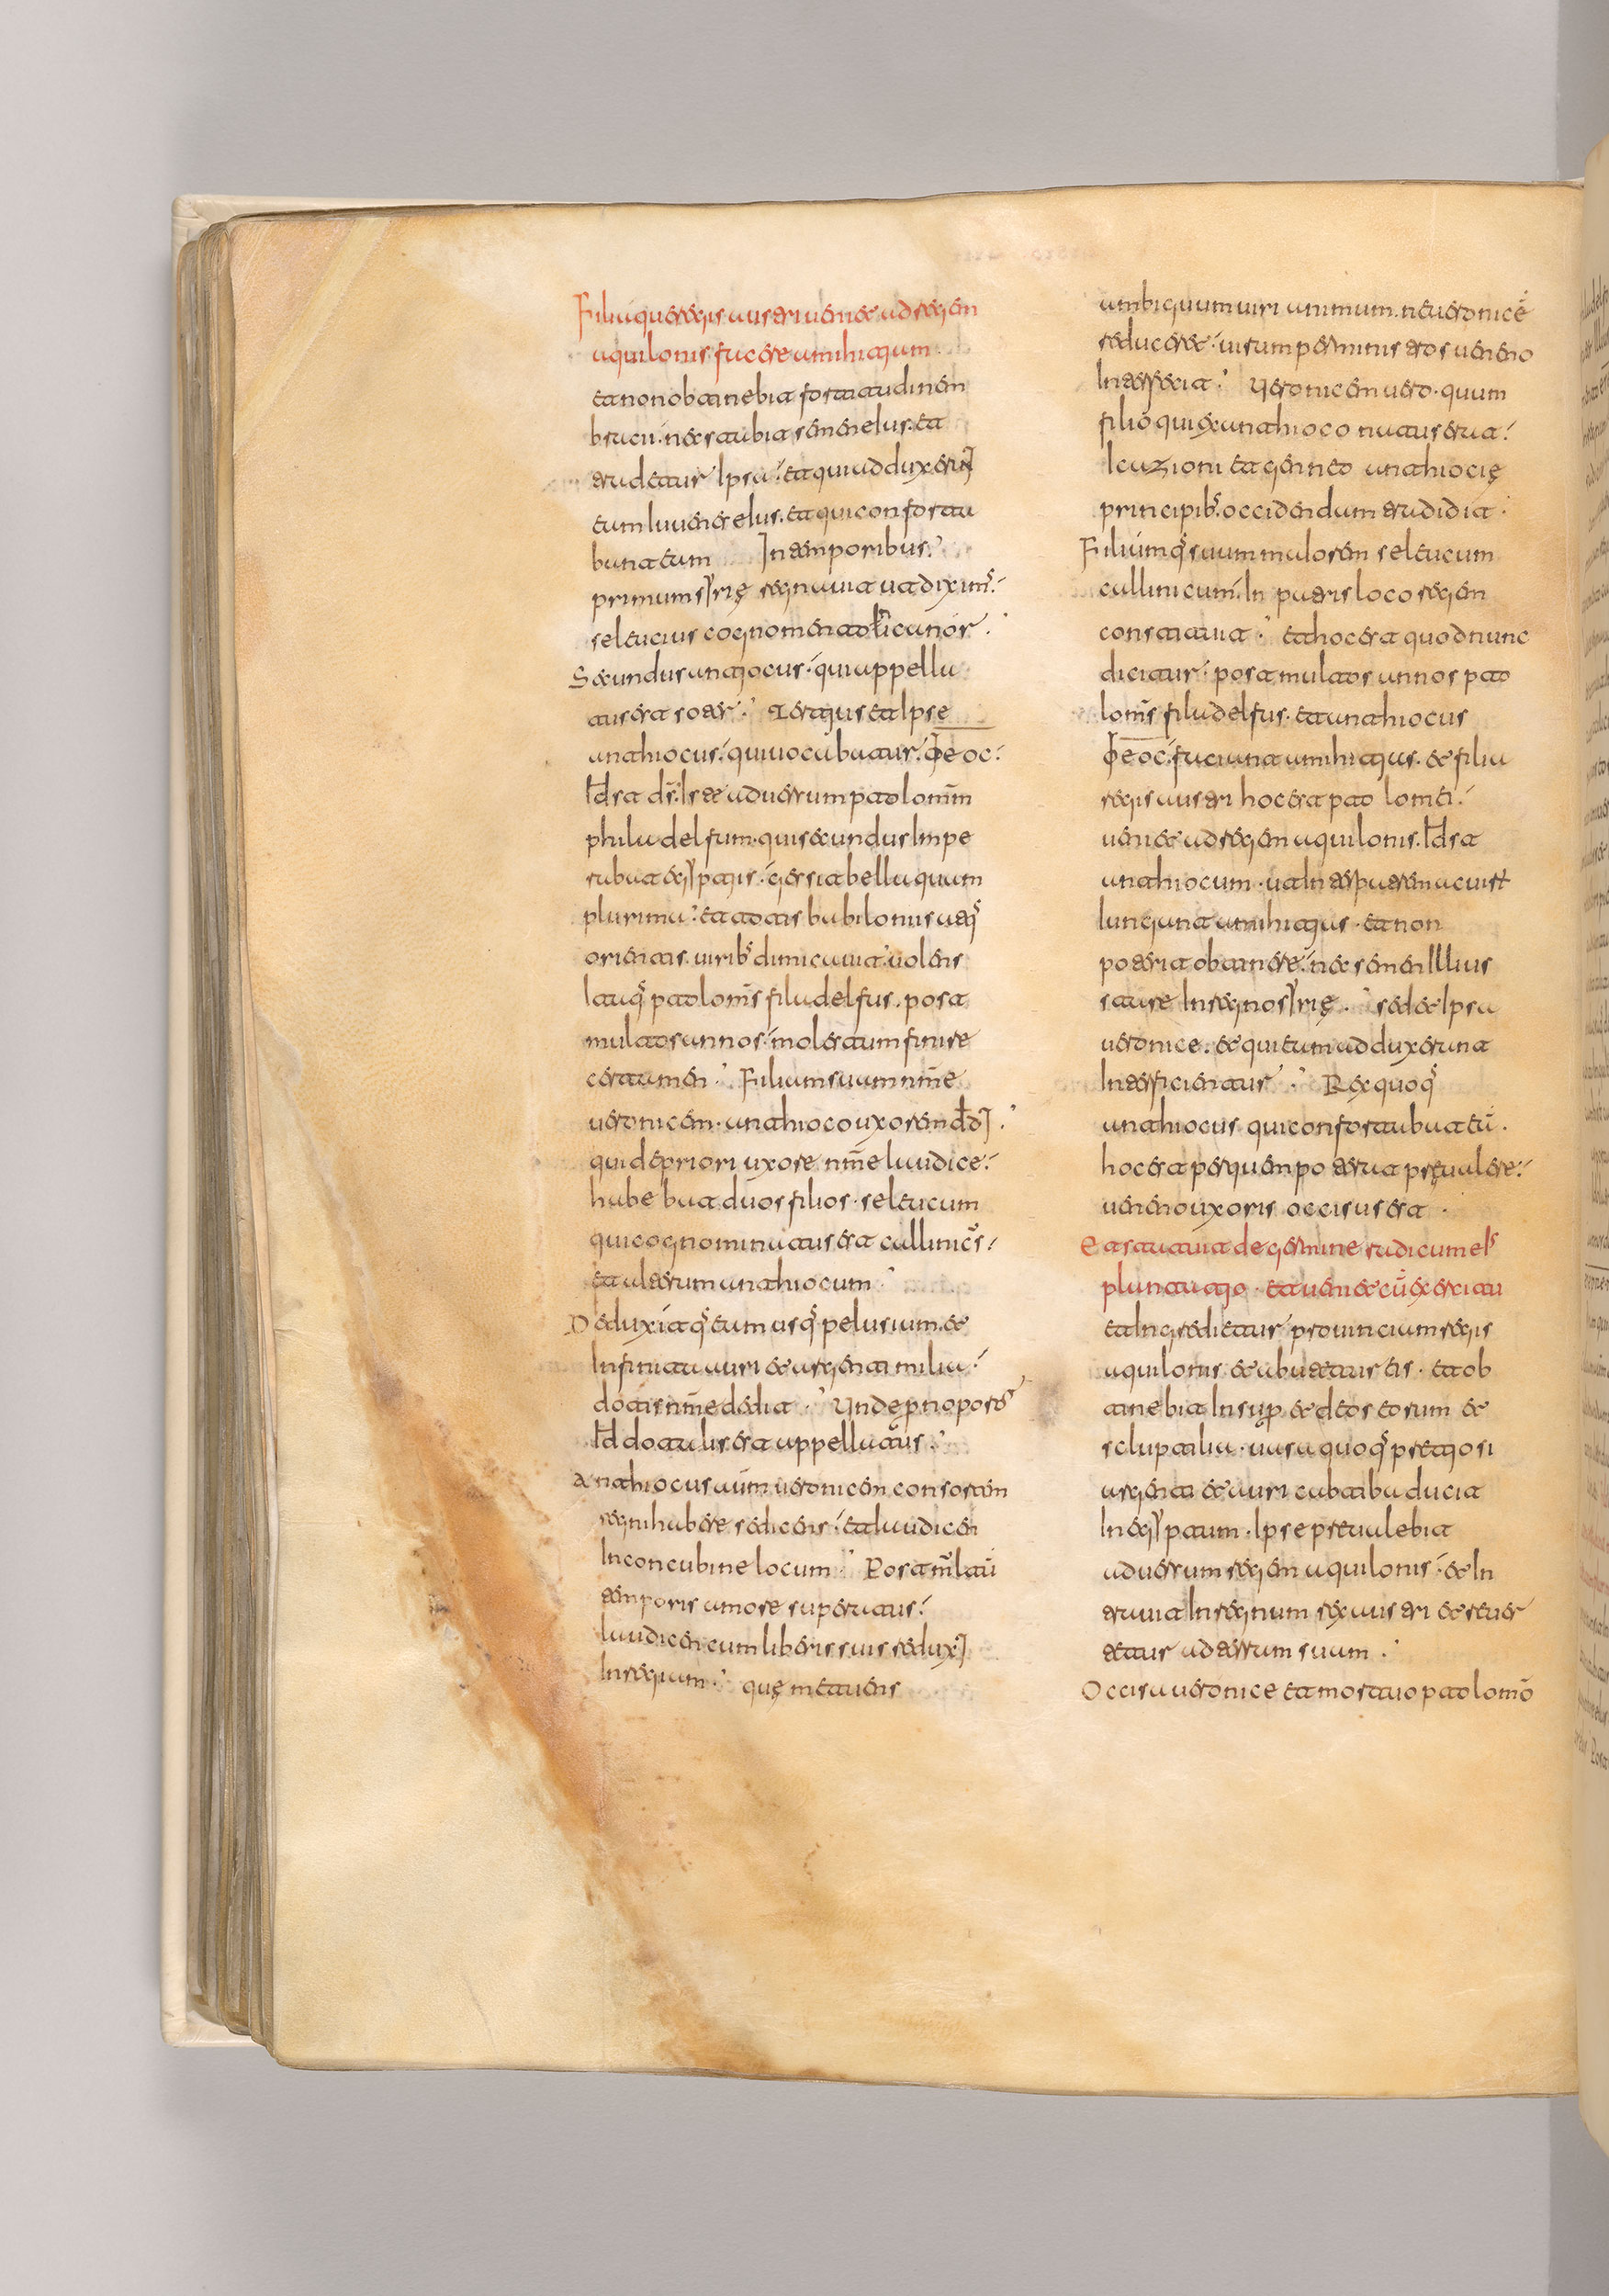 Filiaque regis austri ueniet ad regem
aquilonis facere amihitium
et non obtinebit fortitudinem
bracii. nec stabit semen eius. et
tradetur ipsa. et qui adduxerun̄
eum iuuenes eius. et qui conforta
bant eum In temporibus.
primum syrię regnauit ut diximꝰ.
seleucius cognomento nicanor.
Secundus antiocus. qui appella
tus est soter. Tertius et ipse
antihocus. qui uocabatur. ΦΕΟC.
Id est ds̄. Iste aduersum ptolomm̄
philadelfum. qui secundus Impe
rabat egyptiis. gersit bella quam
plurima. et totis babilonis atqꝫ
orientis. uiribꝫ dimicauit. uolens
Itaqꝫ ptolomꝰ filadelfus. post
multos annos. molestum finire
certamen. Filiam suam nm̄e
ueronicem. antihoco uxorem ded̄.
qui de priori uxore nm̄e laudice.
habebat duos filios. seleucum
qui cognominatus est callinicꝰ.
et alterum antihocum.
Deduxitqꝫ eum usqꝫ pelusium. et
Infinita auri et argenti milia.
dotis nm̄e dedit. Unde
Id dotalis est appellatus.
Antihocus autem ueronicem consortem
regni habere se dicens. et laudicen
In concubine locum. Post ml̄tu
temporis amore superatus.
laudicen cum liberis suis redux̄
In regium. quę metuens
ambiguum uiri animum. ne ueronicē
reduceret. uirum per ministros ueneno
Interfecit. Ueronicem uero. quum
filio qui ex antihoco natus erat.
Icazioni et genneo antihocię
principibꝫ. occidendum tradidit.
Filiumqꝫ suum maiorem seleucum
callinicum. In patris loco regem
constituit. et hoc est quod nunc
dicitur. post multos annos pto
lomꝰ filadelfus. et antihocus
ΦΕΟC. faciunt amihitius. et filia
regis austri hoc est ptolomei.
ueniet ad regem aquilonis. Id est
antihocum. ut Inter patrem ac uirū
Iungant amihitius. et non
poterit obtinere. nec semen Illius
stare In regno syrię. sed et Ipsa
ueronice. et qui eum adduxerunt
Interficientur. Rex quoqꝫ
antihocus qui confortabat eū.
hoc est per quem poterat pręualere.
ueneno uxoris occisus est.
Et stauit de germine radicum eiꝰ
plantatio. et ueniet cū exercitu
et Ingredietur prouinciam regis
aquilonis et abutetur eis. et ob
tinebit Insup̄ et deos eorum et
scluptilia. uasa quoqꝫ pretiosi
argenti et auri cabtiba ducit
In egyptum. Ipse preualebit
aduersum regem aquilonis. et In
trauit In regnum rex austri et reuer
tetur ad terram suam.
Occisa ueronice et mortuo ptolomeo